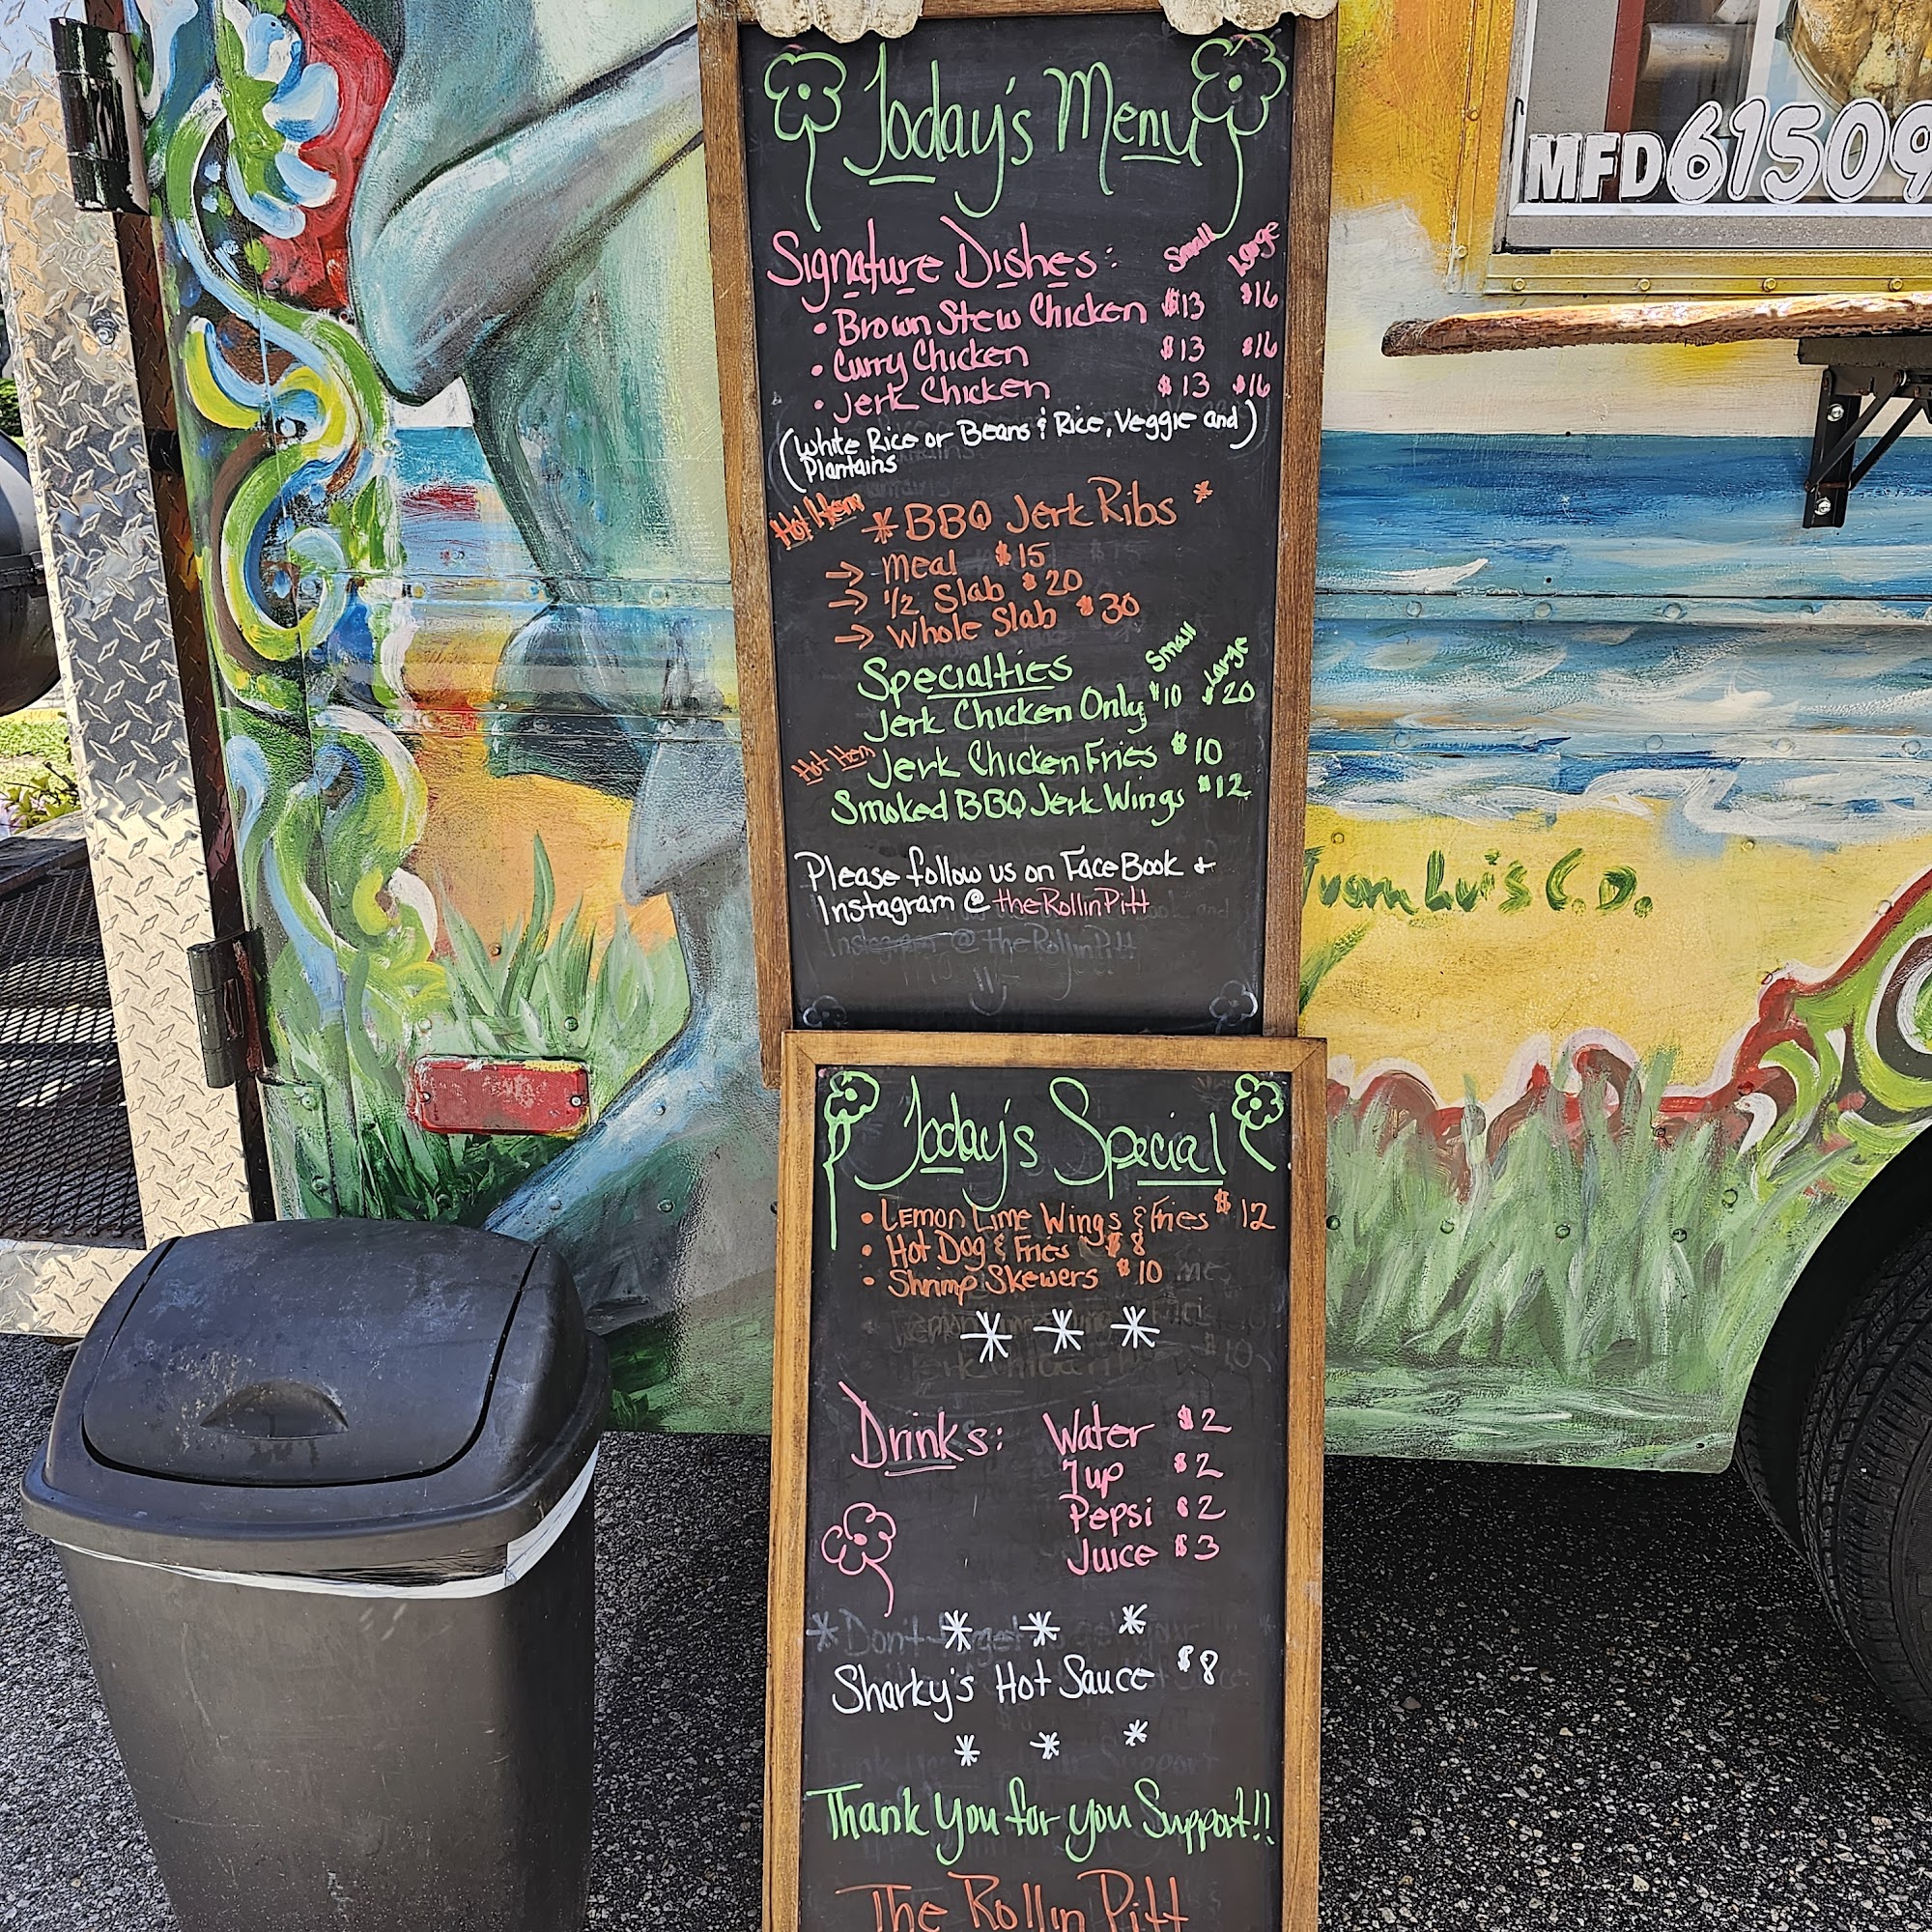 Today's Menu
Signature Dishes: Small Large
• Brown Stew Chicken $13 $16
• Curry Chicken $13 $16
• Jerk Chicken $13 $16
(White Rice or Beans & Rice, Veggie and)
Plantains
Hot Item *BBQ Jerk Ribs *
→ Meal $15
→ 1/2 Slab $20
→ Whole Slab $30
Specialties Small Large
Jerk Chicken Only $10 $20
Hot Item Jerk Chicken Fries $10
Smoked BBQ Jerk Wings $12
Please follow us on FaceBook +
Instagram @ theRollinPitt
Instagram @ theRollinPitt
MFD61509
Juan Luis C.D.
Today's Special
• Lemon Lime Wings & Fries $12
• Hot Dog & Fries $8
• Shrimp Skewers $10
* * *
Drinks: Water $2
7up $2
Pepsi $2
Juice $3
* * *
Sharky's Hot Sauce $8
* * *
Thank you for you Support!!
The Rollin Pitt